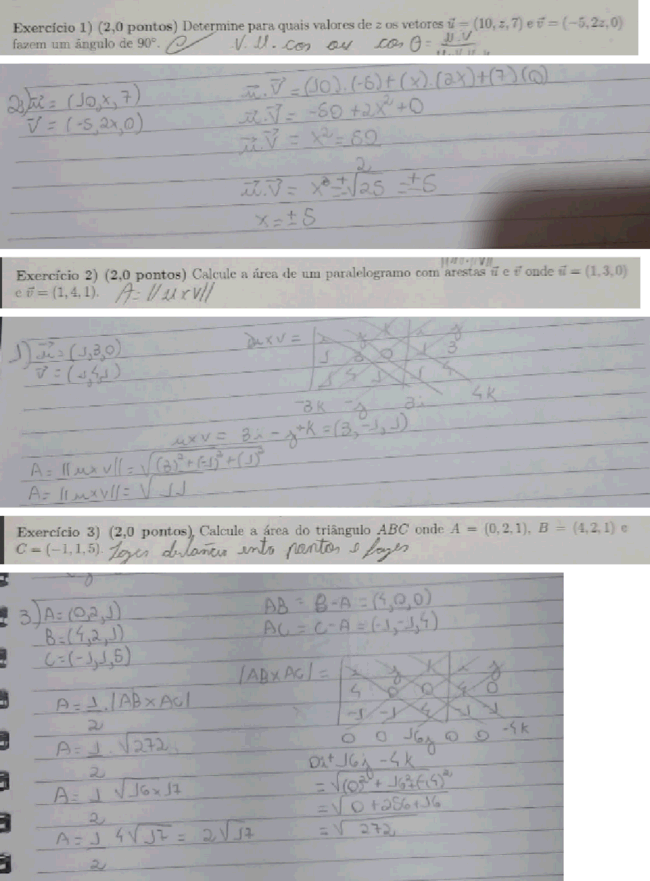 Exercício 1) (2,0 pontos) Determine para quais valores de z os vetores u⃗ = (10, z, 7) e v⃗ = (−5, 2z, 0)
fazem um ângulo de 90°. V.U. cos ou cos θ = u.v
2) u⃗ = (10, x, 7)
v⃗ = (-5, 2x, 0)
u⃗.v⃗ = (10).(-5)+(x).(2x)+(7)(0)
u⃗.v⃗ = -50+2x²+0
u⃗.v⃗ = x² = 50
2
u⃗.v⃗ = x = ±√25 = ±5
x = ±5
Exercício 2) (2,0 pontos) Calcule a área de um paralelogramo com arestas u⃗ e v⃗ onde u⃗ = (1, 3, 0)
e v⃗ = (1, 4, 1). A = ||u x v||
1) u⃗ = (1,3,0)
v⃗ = (1,4,1)
u x v =
1 3 0 1 3
1 4 1 1 4
-3k -j 3i 4k
u x v = 3i - j + k = (3, -1, 1)
A = ||u x v|| = √(3)² + (-1)² + (1)²
A = ||u x v|| = √11
Exercício 3) (2,0 pontos) Calcule a área do triângulo ABC onde A = (0, 2, 1), B = (4, 2, 1) e
C = (−1, 1, 5). pontos e
3) A = (0,2,1)
B = (4,2,1)
C = (-1,1,5)
AB = B-A = (4,0,0)
AC = C-A = (-1,-1,4)
|AB x AC| = i j k i j
4 0 0 4 0
-1 -1 4 -1 -1
0 0 16j 0 0 -4k
0i + 16j - 4k
= √(0)² + 16² + (-4)²
= √0 + 256 + 16
= √272
A = 1 . |AB x AC|
2
A = 1 . √272
2
A = 1 √16x17
2
A = 1 4√17 = 2√17
2